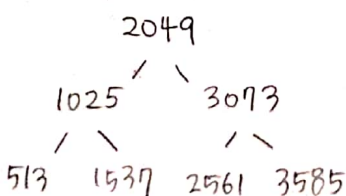 2049
1025 3073
513 1537 2561 3585